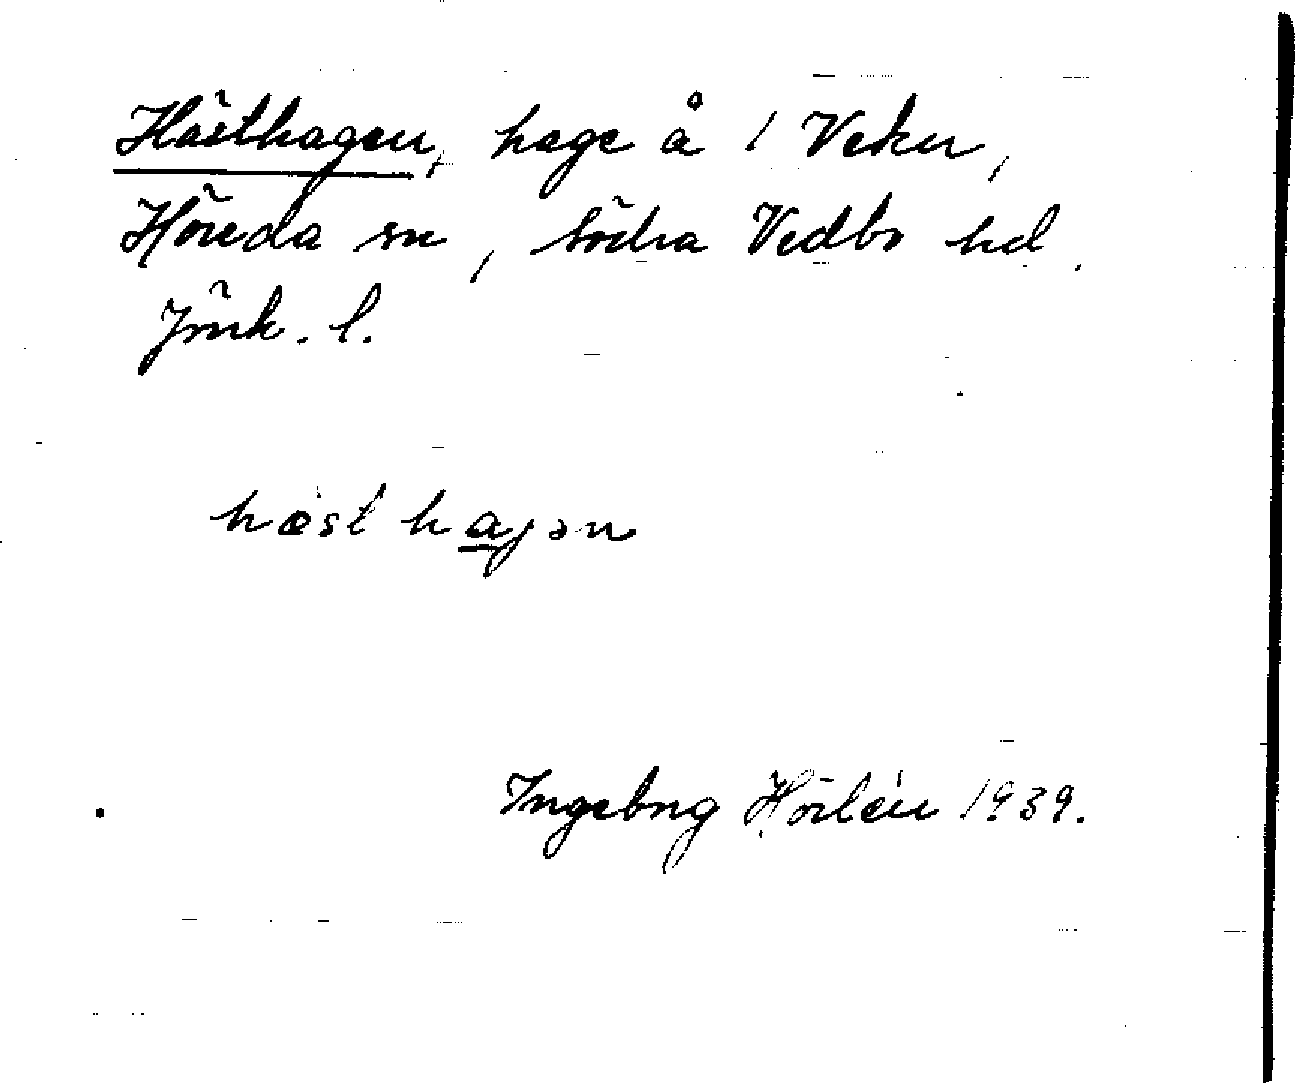 Hästhagen, hage å 1 Veker,
Höreda sn, Södra Vedbo hd.
Jönk. l.
hæst hagən
Ingeborg Hörlén 1939.